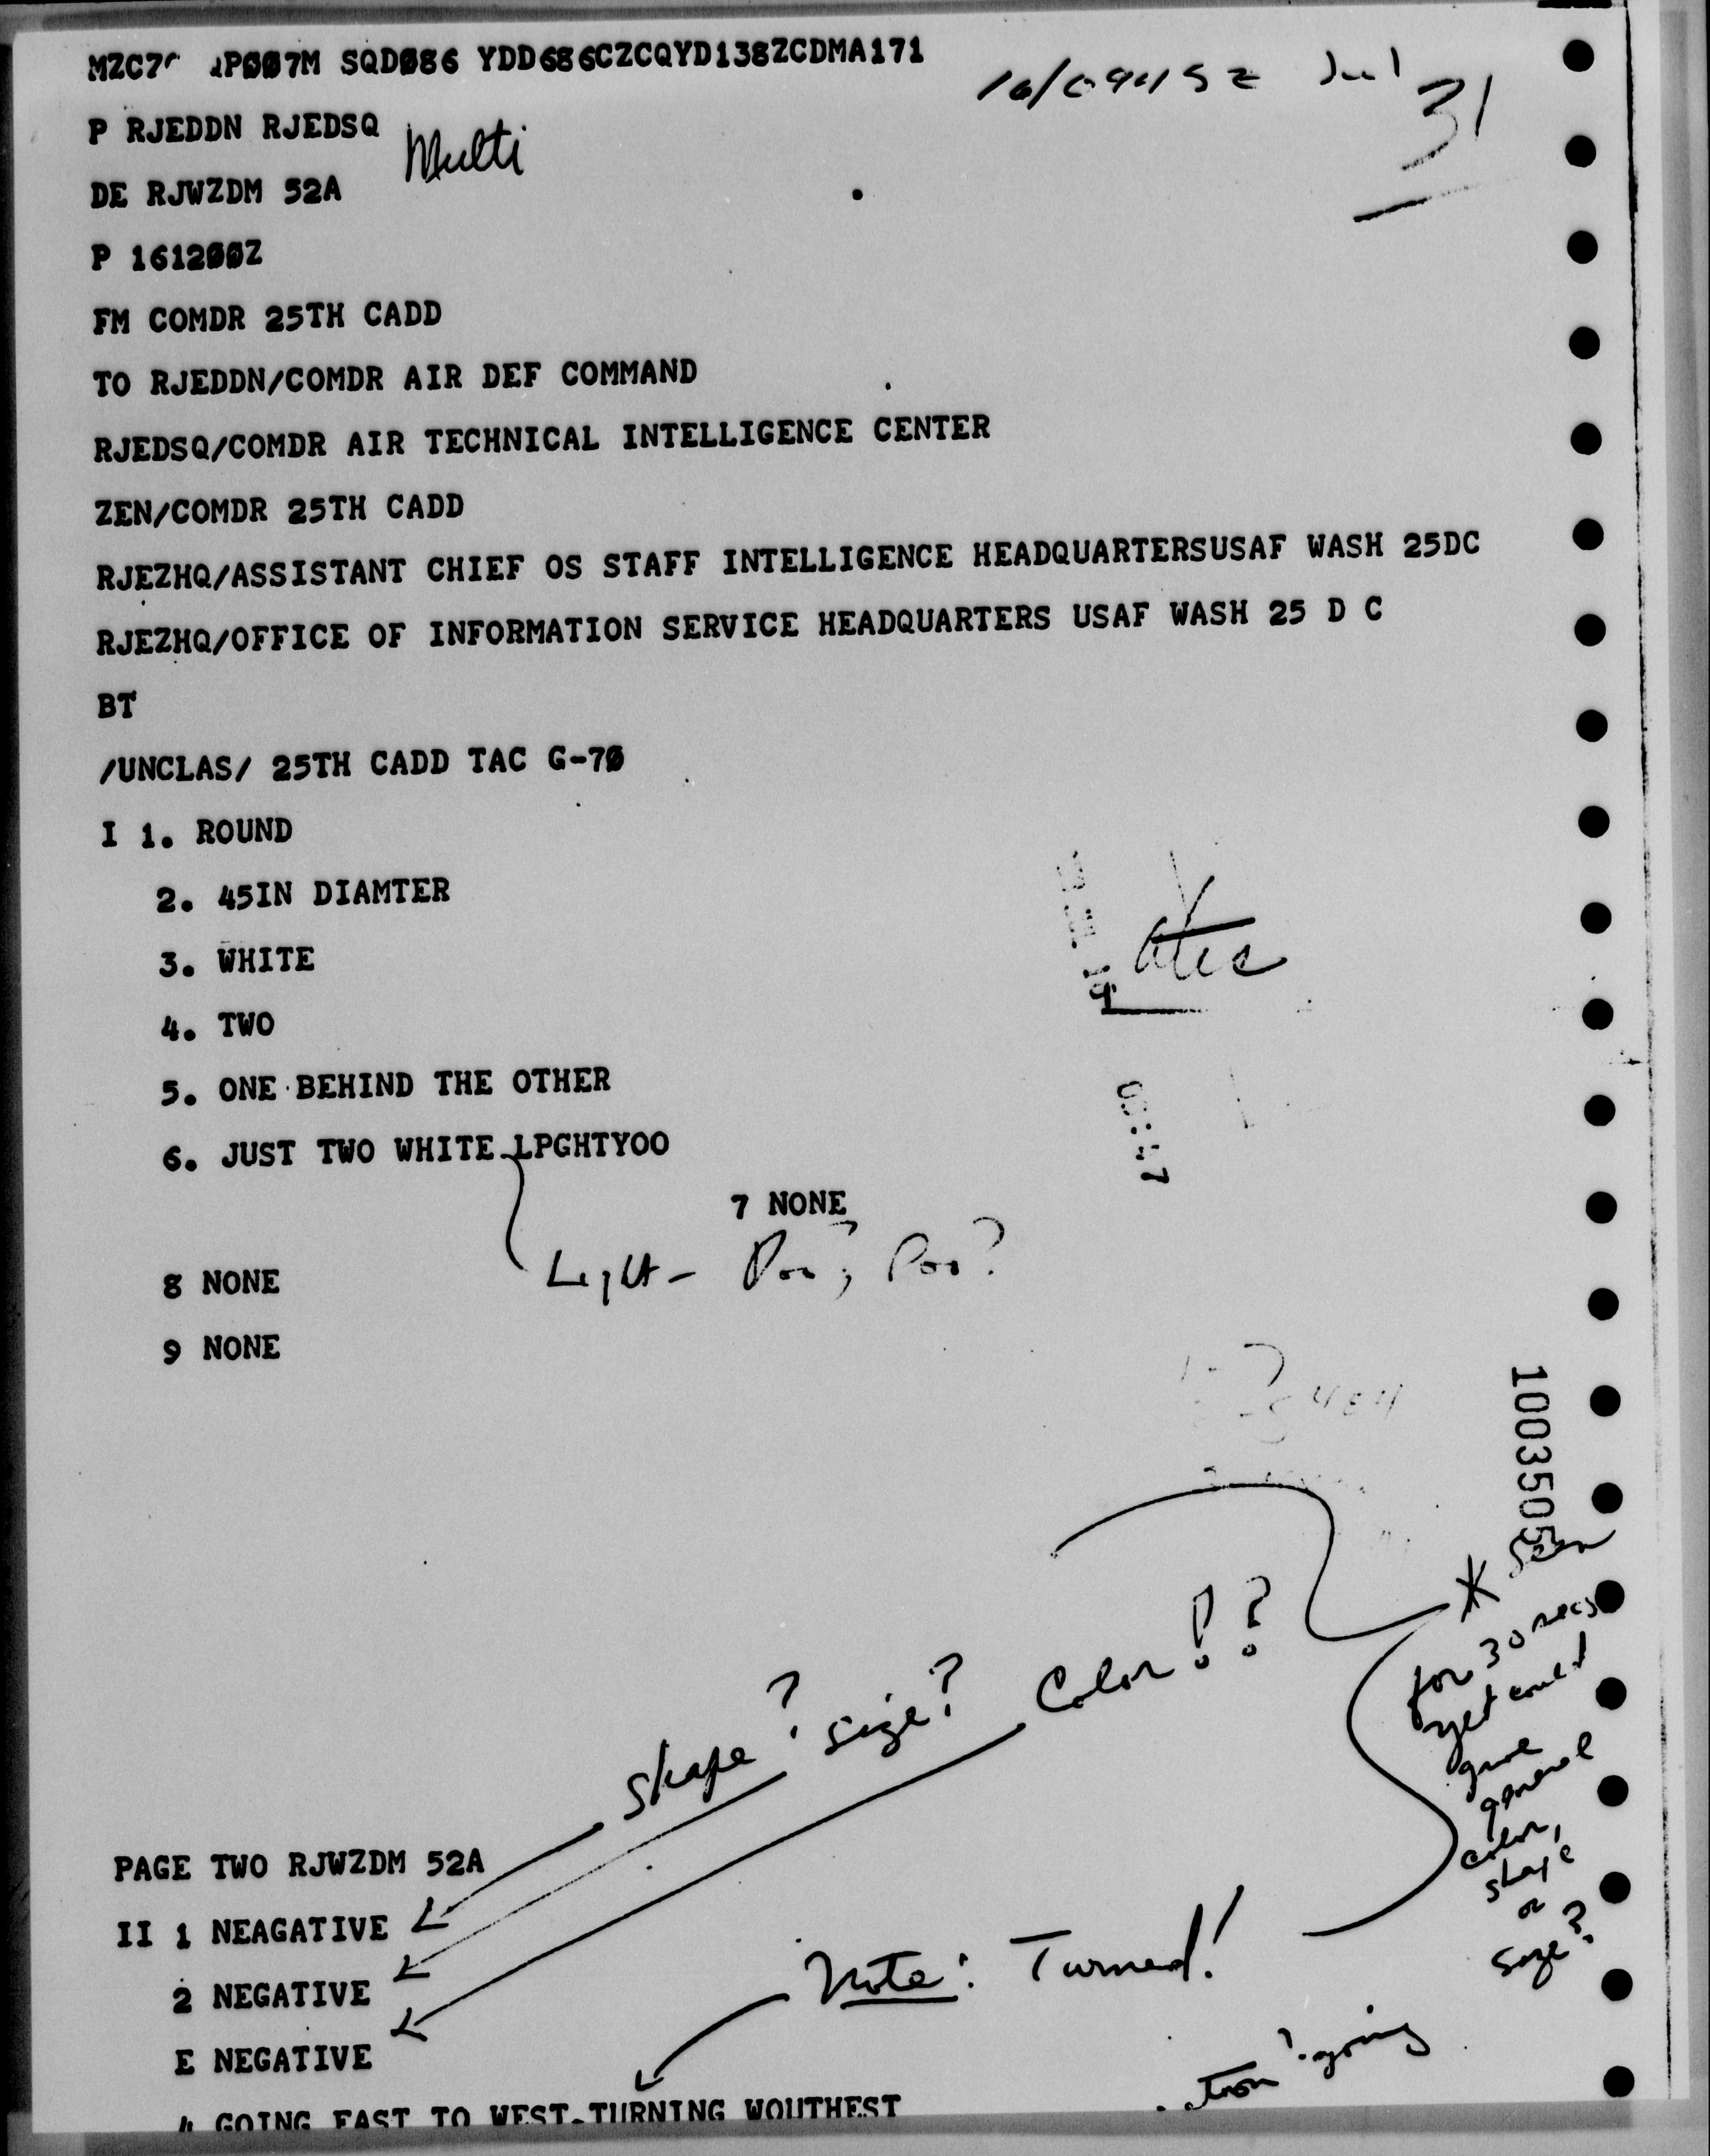 MZC7 P007M SQD086 YDD686CZCQYD138ZCDMA171
31
P RJEDDN RJEDSQ
Multi
DE RJWZDM 52A
P 161200Z
FM COMDR 25TH CADD
TO RJEDDN/COMDR AIR DEF COMMAND
RJEDSQ/COMDR AIR TECHNICAL INTELLIGENCE CENTER
ZEN/COMDR 25TH CADD
RJEZHQ/ASSISTANT CHIEF OS STAFF INTELLIGENCE HEADQUARTERSUSAF WASH 25DC
RJEZHQ/OFFICE OF INFORMATION SERVICE HEADQUARTERS USAF WASH 25 D C
BT
/UNCLAS/ 25TH CADD TAC G-70
I 1. ROUND
2. 45IN DIAMTER
3. WHITE
4. TWO
5. ONE BEHIND THE OTHER
6. JUST TWO WHITE LPGHTYOO
7 NONE
Light -
8 NONE
9 NONE
10035055
* Seen
for 30 secs
yet could
give
general
color,
shape
or
size?
Shape? size? Color!?
PAGE TWO RJWZDM 52A
II 1 NEAGATIVE
2 NEGATIVE
Note: Turned!
E NEGATIVE
going
4 GOING EAST TO WEST.TURNING WOUTHEST